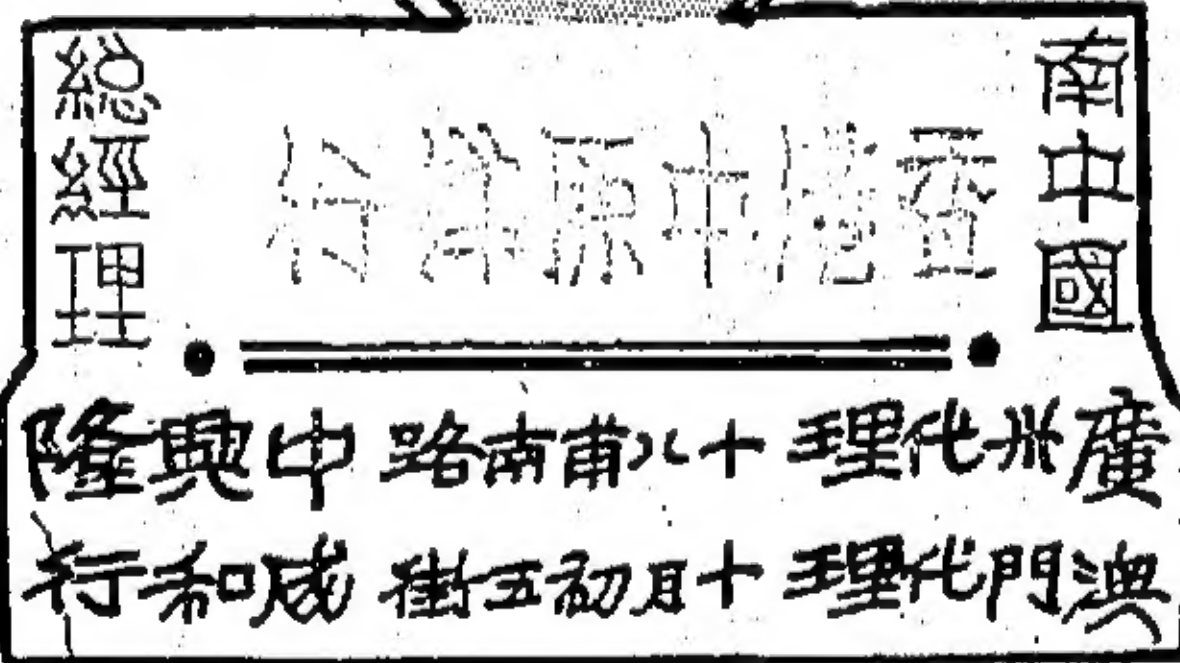 南中國
香港中原洋行
總經理
廣州代理 十八甫南路 中興隆
澳門代理 十月初五街 成和行